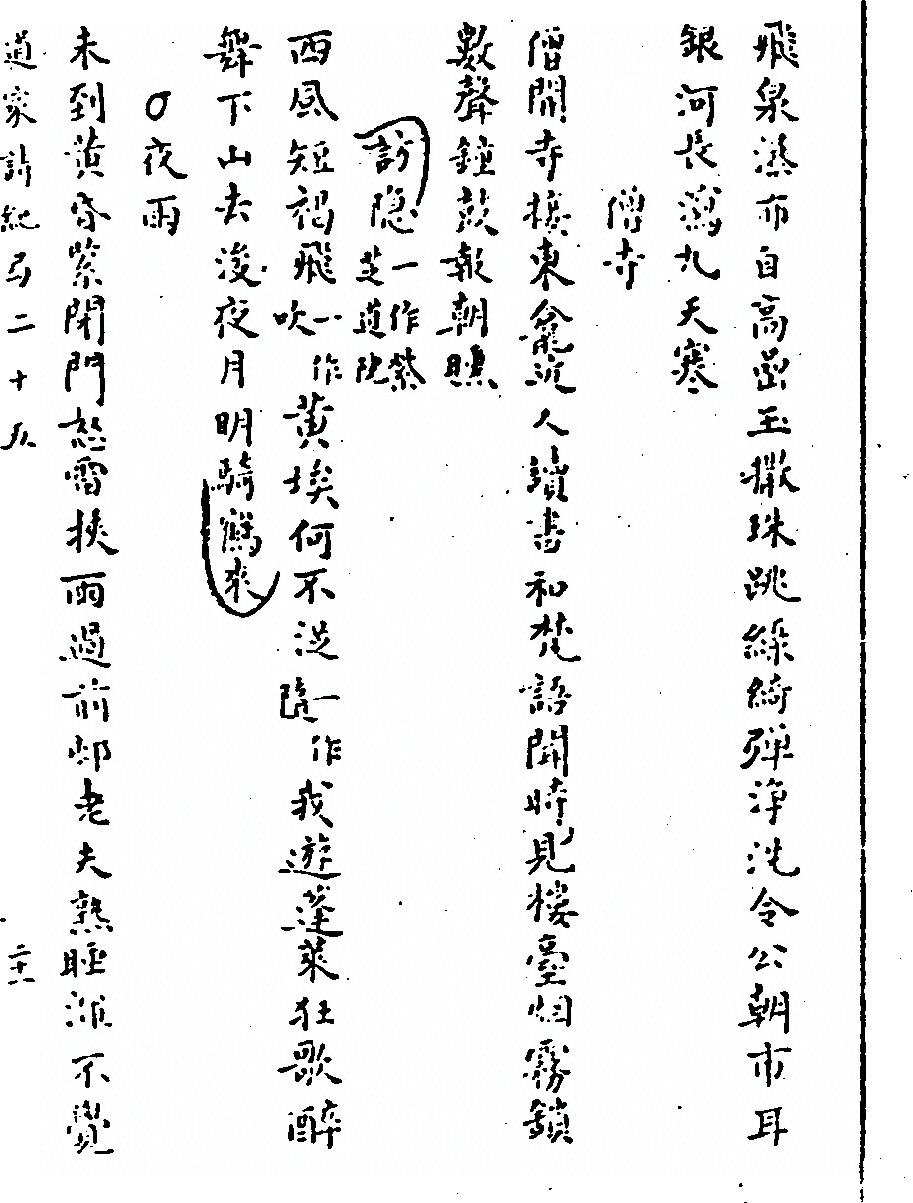 飛泉瀑布自高巒玉撒珠跳綠綺彈淨洗令公朝市耳
銀河長瀉九天寒
僧寺
僧閒寺樓東龕近人讀書和梵語聞時見樓臺烟霧鎖
數聲鐘鼓報朝曛
訪隱一作紫芝道院
西風短褐飛一作吹黃埃何不從一作隨我遊蓬萊狂歌醉
舞下山去後夜月明騎鶴來
夜雨
未到黃昏紫閉門怒雷挾雨過前邨老夫熟睡渾不覺
道家詩紀弓二十五
二十六